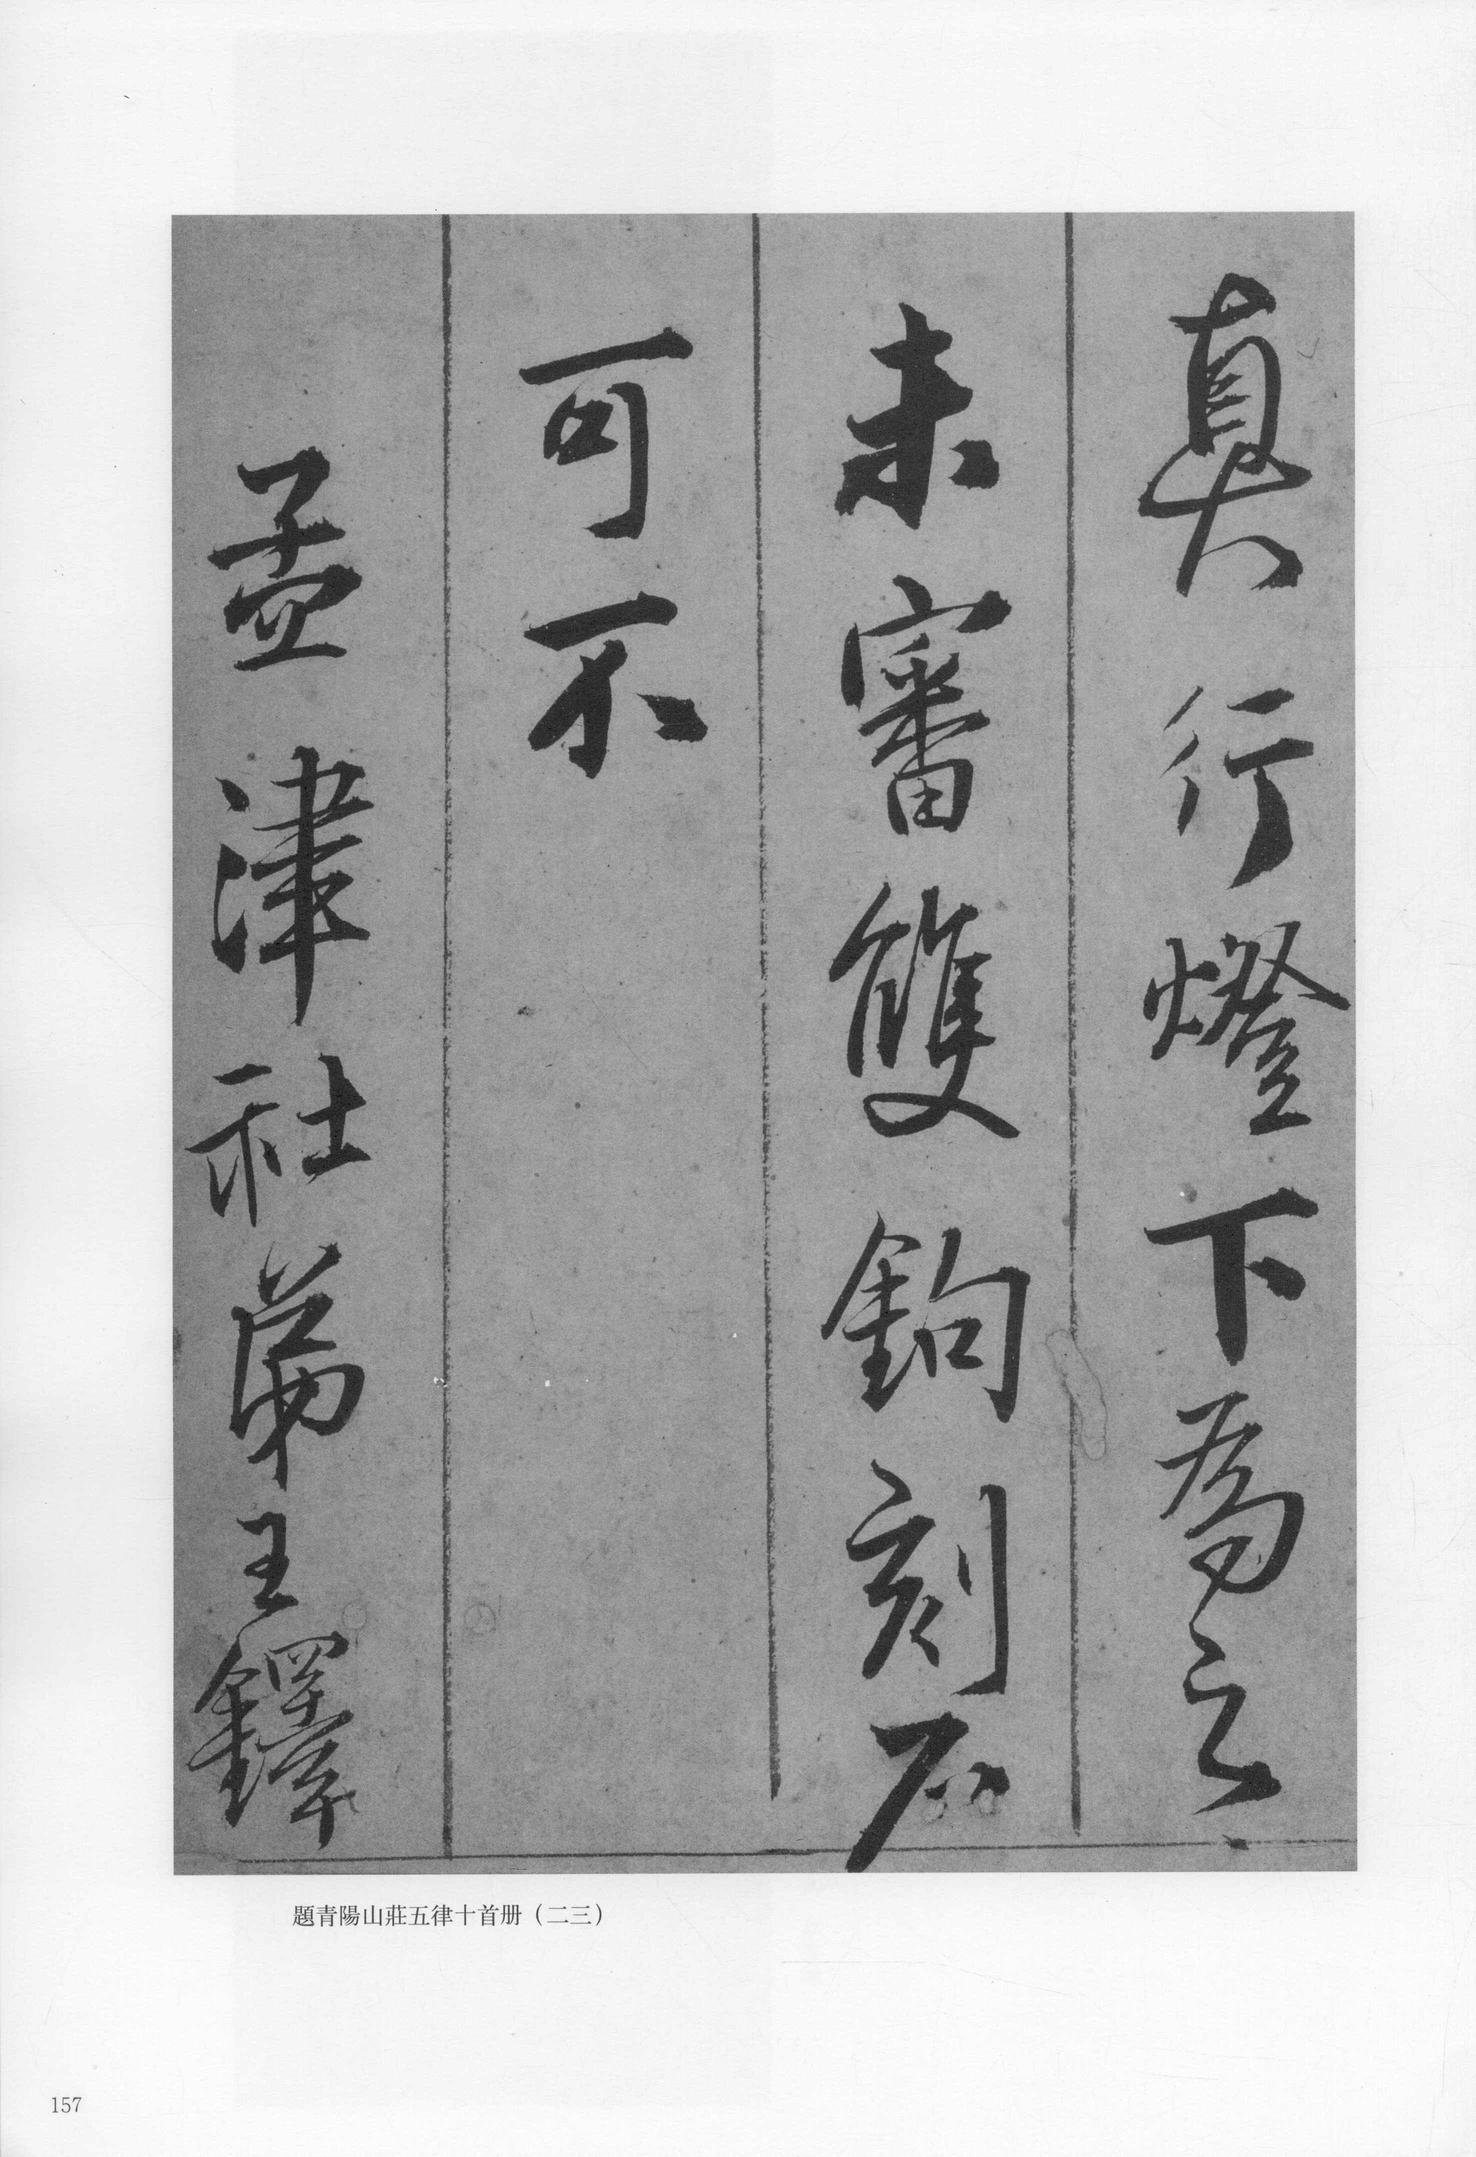 真行燈下爲之
未審雙鉤刻石
可不
孟津社弟王鐸
題青陽山莊五律十首册（二三）
157